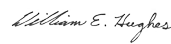 William E. Hughes